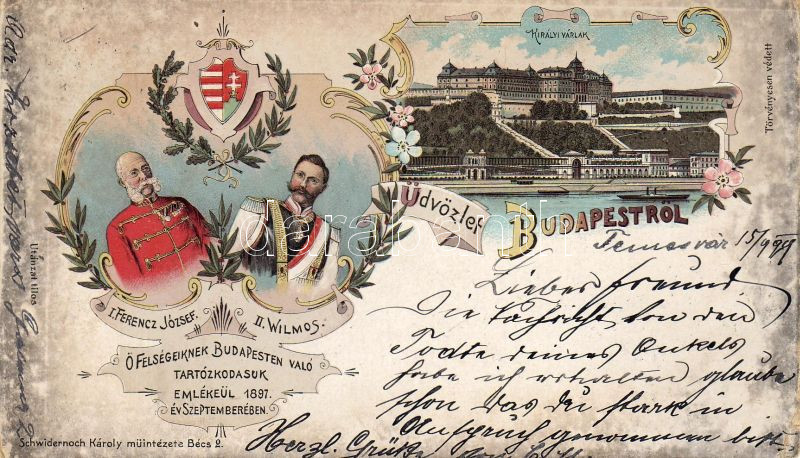 KIRÁLYI VÁRLAK
Törvényesen védett
Üdvözlet
BUDAPESTRŐL
I. FERENCZ JÓZSEF.
II. WILMOS.
Ő FELSÉGEIKNEK BUDAPESTEN VALÓ
TARTÓZKODASUK
EMLÉKEÜL 1897.
ÉV SZEPTEMBERÉBEN.
Utánzat tilos
Schwidernoch Károly müintézete Bécs 2.
darabanth
Temesvár 15/9 99
Lieber Freund,
Die Nachricht von den
Todte deines Onkels
habe ich erhalten glaube
schon das du stark in
Anspruch genommen bist.
Herzl. Grüße
Adr.